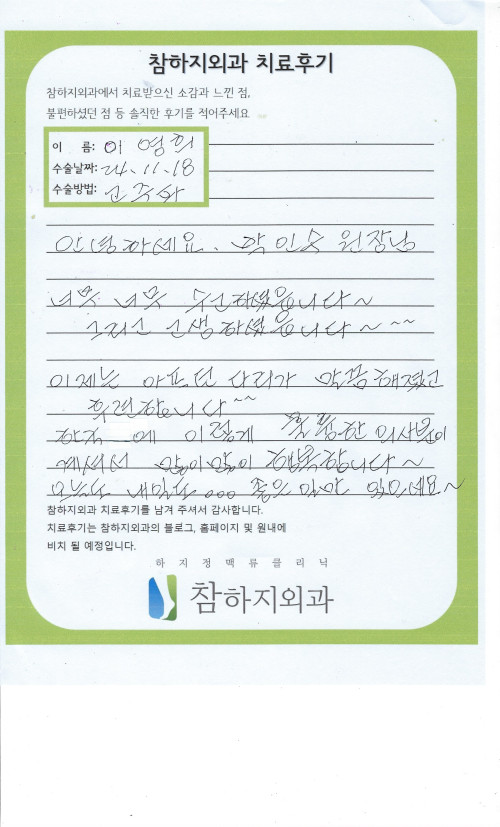 참하지외과 치료후기
참하지외과에서 치료받으신 소감과 느낀 점,
불편하셨던 점 등 솔직한 후기를 적어주세요
이 름: 이영희
수술날짜: 24.11.18
수술방법: 고주파
안녕하세요. 박인수 원장님
너무 너무 수고하셨읍니다~
그리고 고생하셨읍니다~~~
이제는 아프던 다리가 말끔해졌고
후련합니다~~
에 이렇게 훌륭한 의사분이
계셔서 많이많이 행복합니다~
오늘도 내일도... 좋은 일만 있으세요~
참하지외과 치료후기를 남겨 주셔서 감사합니다.
치료후기는 참하지외과의 블로그, 홈페이지 및 원내에
비치 될 예정입니다.
하지정맥류클리닉
참하지외과